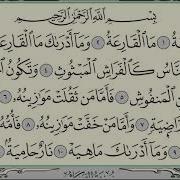 بِسْمِ ٱللَّهِ ٱلرَّحْمَٰنِ ٱلرَّحِيمِ
ةُ ١ مَا ٱلْقَارِعَةُ ٢ وَمَآ أَدْرَىٰكَ مَا ٱلْقَارِعَ
نَّاسُ كَٱلْفَرَاشِ ٱلْمَبْثُوثِ ٤ وَتَكُونُ ٱ
ٱلْمَنفُوشِ ٥ فَأَمَّا مَن ثَقُلَتْ مَوَٰزِينُهُۥ ٦
اضِيَةٍ ٧ وَأَمَّا مَنْ خَفَّتْ مَوَٰزِينُهُۥ ٨ فَأُمُّهُۥ
٩ وَمَآ أَدْرَىٰكَ مَا هِيَهْ ١٠ نَارٌ حَامِيَةٌۢ ١١